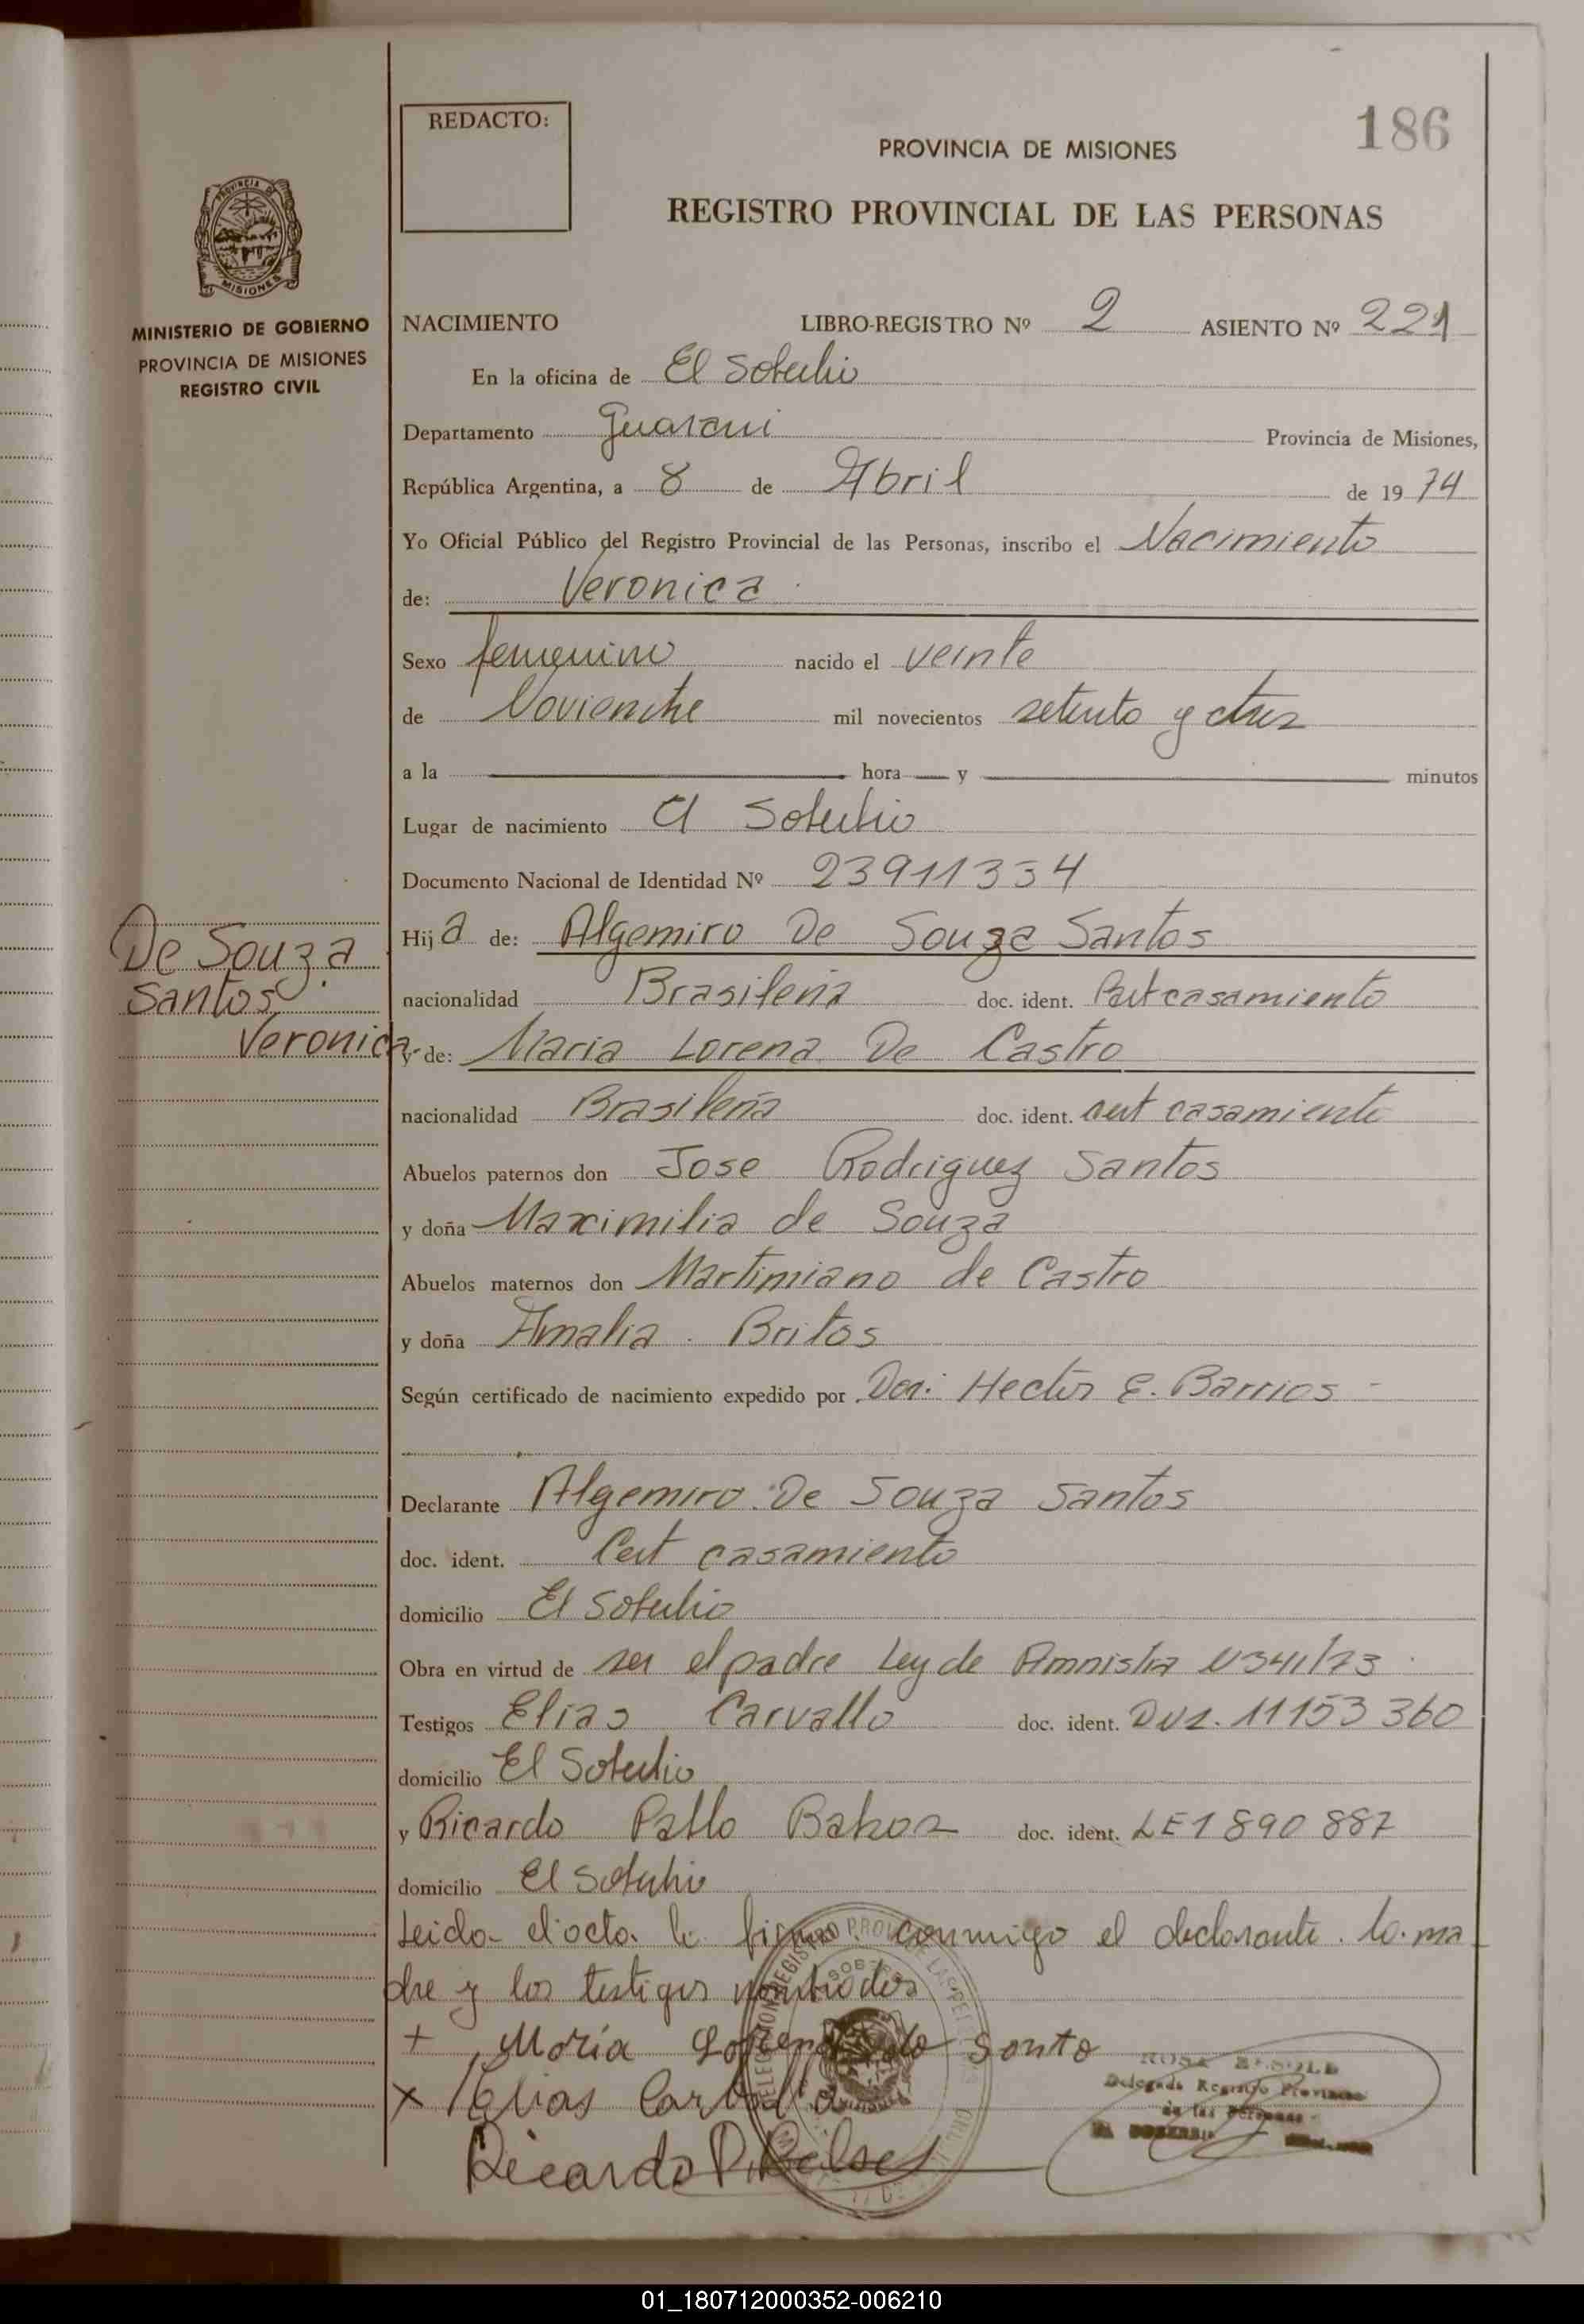 REDACTO:
186
PROVINCIA DE MISIONES
REGISTRO PROVINCIAL DE LAS PERSONAS
PROVINCIA DE
MISIONES
MINISTERIO DE GOBIERNO
PROVINCIA DE MISIONES
REGISTRO CIVIL
NACIMIENTO LIBRO-REGISTRO Nº 2 ASIENTO Nº 221
En la oficina de El Soberbio
Departamento Guarani Provincia de Misiones,
República Argentina, a 8 de Abril de 1974
Yo Oficial Público del Registro Provincial de las Personas, inscribo el Nacimiento
de: Veronica
Sexo femenino nacido el veinte
de Noviembre mil novecientos setenta y tres
a la hora y minutos
Lugar de nacimiento El Soberbio
Documento Nacional de Identidad Nº 23911334
Hija de: Algemiro De Souza Santos
nacionalidad Brasileña doc. ident. Cert casamiento
De Souza
Santos
Veronica
y de: Maria Lorena De Castro
nacionalidad Brasileña doc. ident. cert casamiento
Abuelos paternos don Jose Rodriguez Santos
y doña Maximilia de Souza
Abuelos maternos don Martimiano de Castro
y doña Amalia Britos
Según certificado de nacimiento expedido por Hector E. Barrios
Declarante Algemiro De Souza Santos
doc. ident. Cert casamiento
domicilio El Soberbio
Obra en virtud de ser el padre Ley de Amnistia 341/73
Testigos Elias Carvallo doc. ident. 11153360
domicilio El Soberbio
y Ricardo Pablo doc. ident. LE 1890887
domicilio El Soberbio
Leido el acta la firma conmigo el declarante la ma
dre y los testigos nombrados
+ Moria do Santo
x Elias Carballo
Ricardo P.
Delegada Registro Provincial
de las Personas
01_180712000352-006210